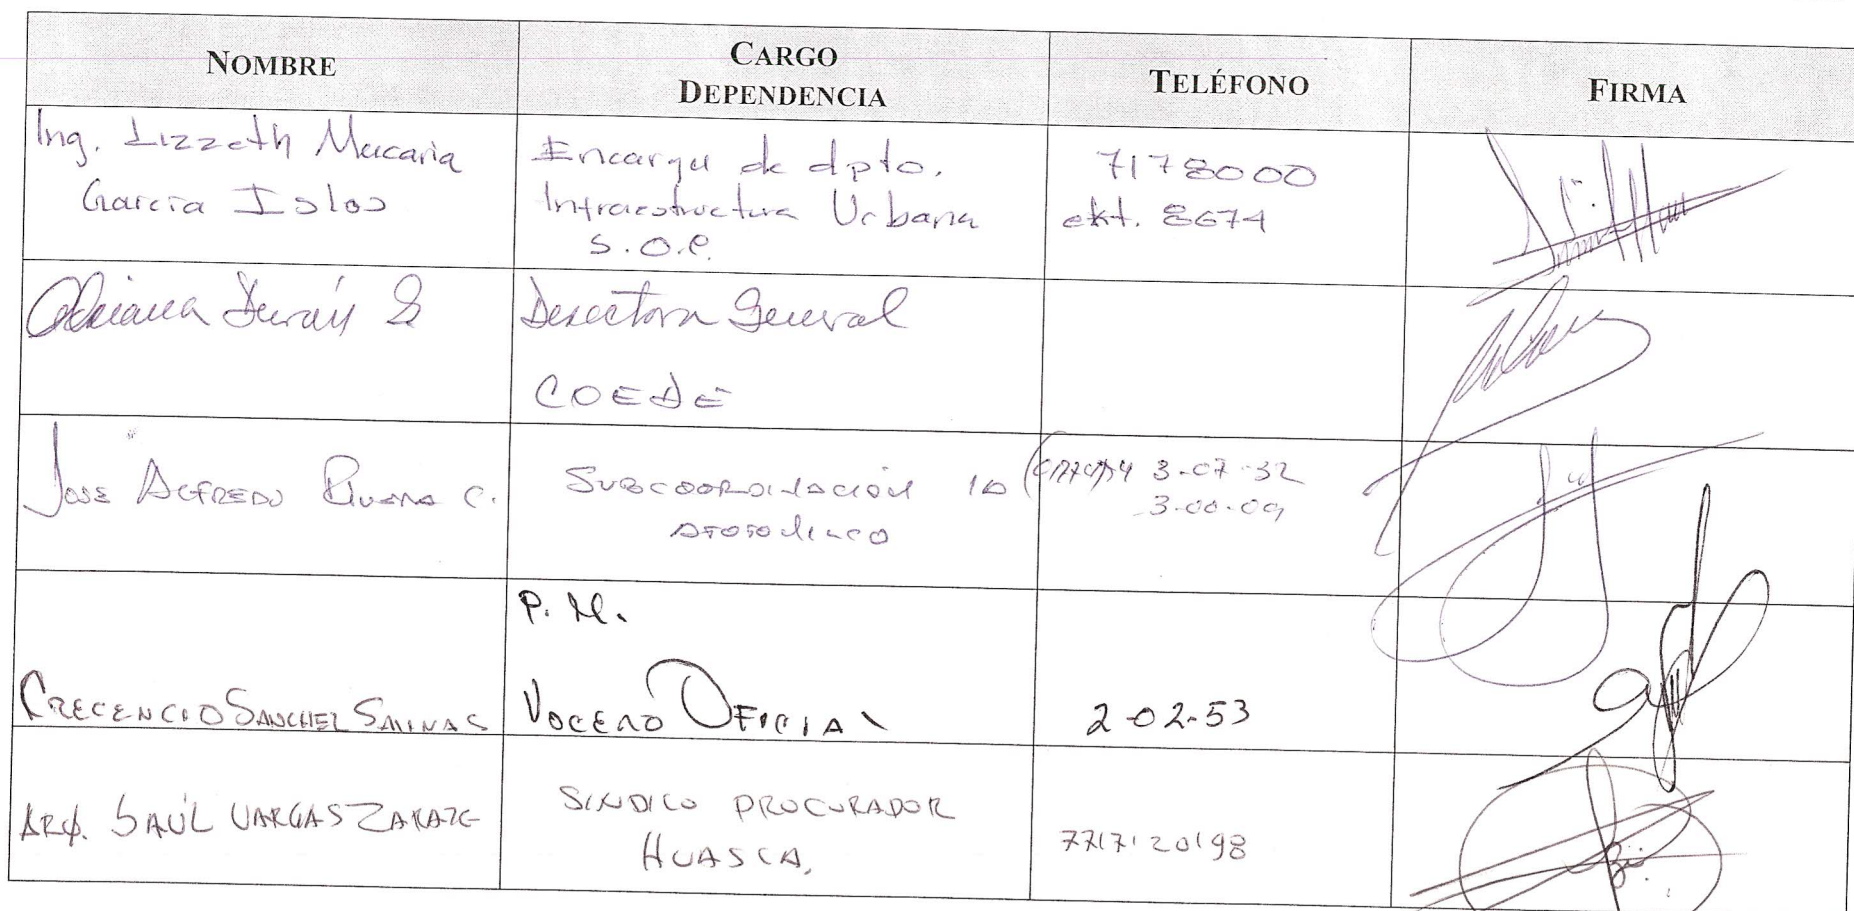 NOMBRE
CARGO
DEPENDENCIA
TELÉFONO
FIRMA
Ing. Lizzeth Macaria
García Islas
Encarga de dpto.
Infraestructura Urbana
S.O.P.
7178000
ext. 8674
Adriana Durán S
Directora General
COEDE
JOSE ALFREDO RIVERA C.
SUBCOORDINACIÓN 10
ATOTONILCO
3-07-32
3-00-09
CRECENCIO SANCHEZ SALINAS
P. M.
VOCERO OFICIAL
2-02-53
ARQ. SAÚL VARGAS ZARATE
SINDICO PROCURADOR
HUASCA,
7717120198